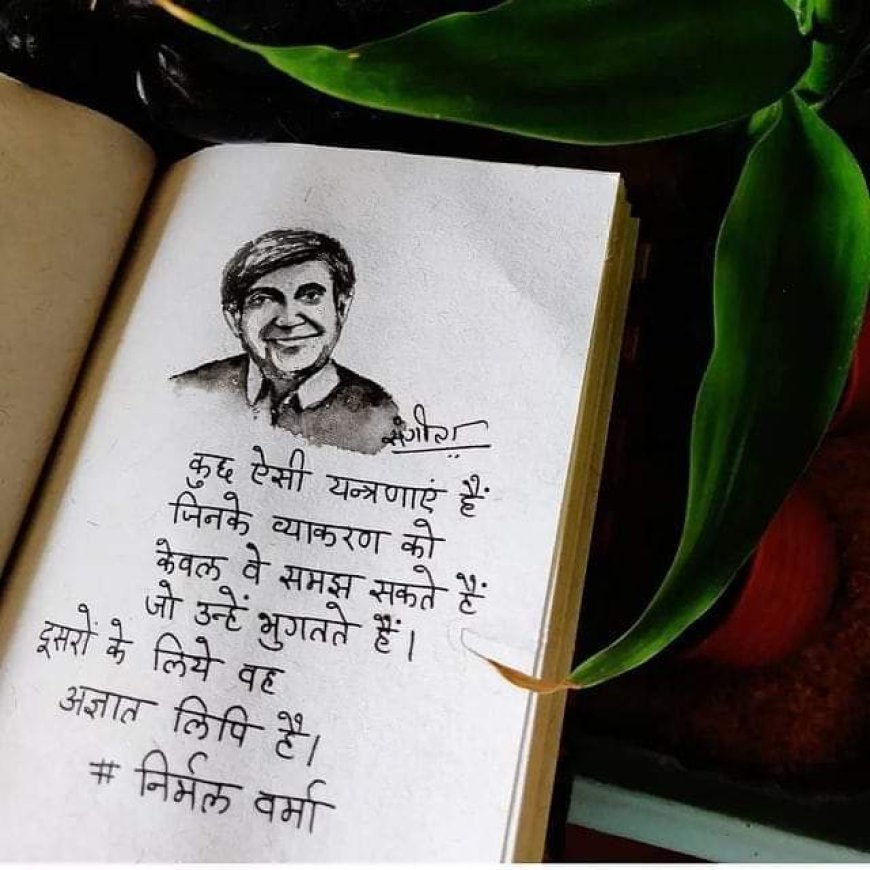 संगीता
कुछ ऐसी यन्त्रणाएं हैं
जिनके व्याकरण को
केवल वे समझ सकते हैं
जो उन्हें भुगतते हैं।
दूसरों के लिये वह
अज्ञात लिपि है।
# निर्मल वर्मा